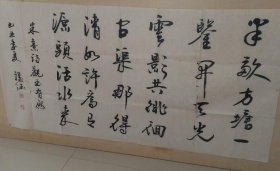 半亩方塘一
鉴开天光
云影共徘徊
问渠那得
清如许为有
源头活水来
朱熹诗观书有感